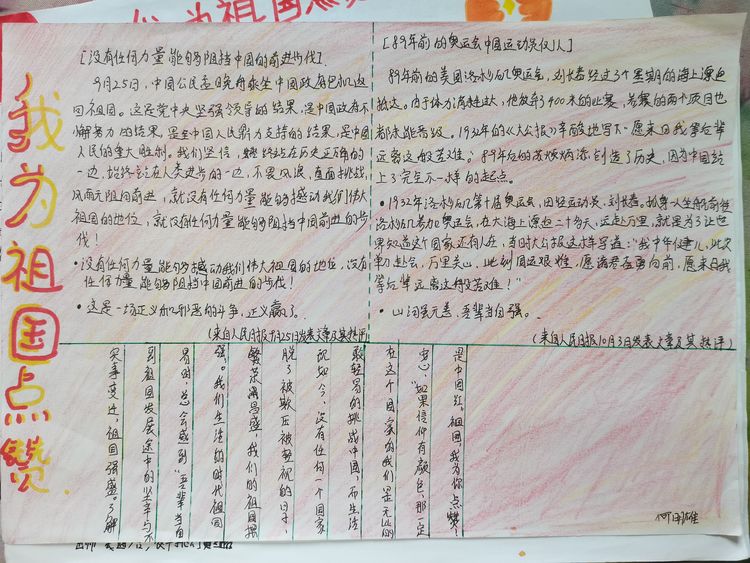 我为祖国点赞
[没有任何力量能够阻挡中国的前进步伐]
9月25日，中国公民孟晚舟乘坐中国政府包机返
回祖国。这是党中央坚强领导的结果，是中国政府不
懈努力的结果，是全中国人民鼎力支持的结果，是中国
人民的重大胜利。我们坚信，始终站在历史正确的
一边，始终站在人类进步的一边，不畏风浪，直面挑战，
风雨无阻向前进，就没有任何力量能够撼动我们伟大
祖国的地位，就没有任何力量能够阻挡中国前进的步
伐！
·没有任何力量能够撼动我们伟大祖国的地位，没有
任何力量能够阻挡中国前进的步伐！
·这是一场正义和邪恶的斗争，正义赢了。
(来自人民日报9月25日发表文章及其热评)
[89年前的奥运会中国运动员仅1人]
89年前的美国洛杉矶奥运会，刘长春经过3个星期的海上漂泊
抵达。由于体力消耗过大，他放弃了400米的比赛，参赛的两个项目也
都未能晋级。1932年的《大公报》辛酸地写下：愿来日我等后辈
远离这般苦难。89年后的苏炳添创造了历史，因为中国站
上了完全不一样的起点。
·1932年洛杉矶第十届奥运会，田径运动员刘长春，孤身从
洛杉矶参加奥运会，在大海上漂泊二十多天，远赴万里，就是为了让世
界知道这个国家还有人在，当时大公报这样写道："我中华健儿，此次
单刀赴会，万里关山，此刻国运艰难，愿诸君奋勇向前，愿来日我
等后辈远离这般苦难！"
·山河无恙，吾辈当自强。
(来自人民日报10月3日发表文章及其热评)
是中国红。祖国，我为你点赞！
忠心，"如果信仰有颜色，那一定
在这个国家的我们是无比的
敢轻易的挑战中国，而生活
况如今，没有任何一个国家
脱了被欺压被轻视的日子，
繁荣昌盛，我们的祖国摆
强。我们生活的时代祖国
易时，总会感到"吾辈当自
到祖国发展途中的艰辛与不
灾事变迁，祖国强盛。了解